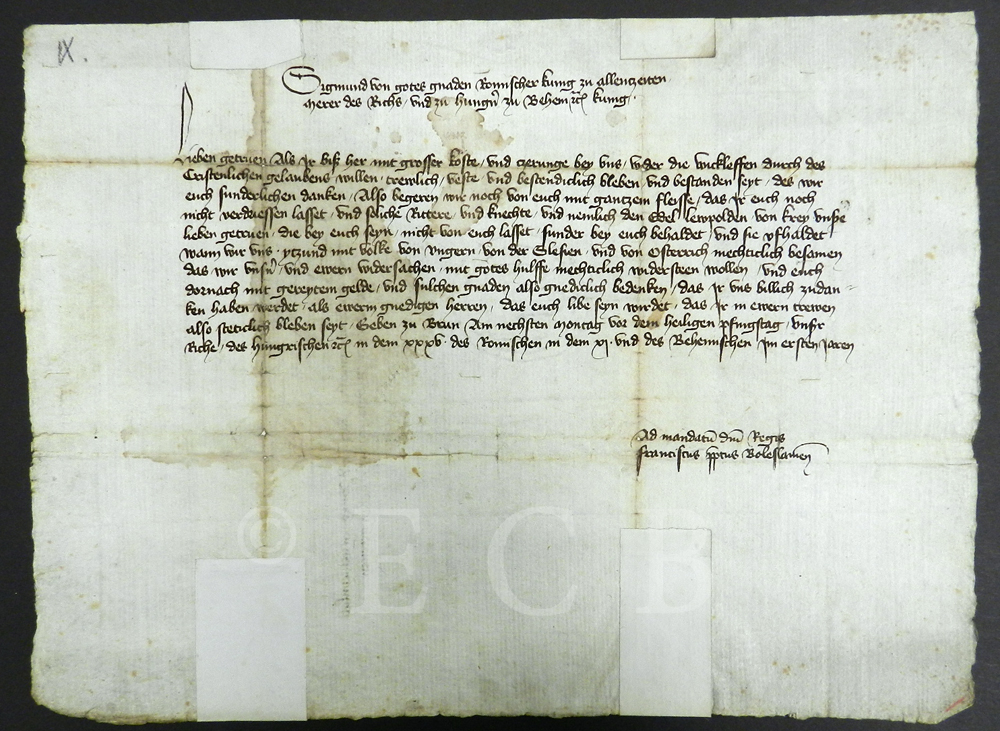 IX.
Sigmund von gotes gnaden Romischer kunig zu allenczeiten
merer des Richs vnd zu Hungern̄ zu Behem ꝛc̄ kunig.
Lieben getruen Als Ir biß her mit grosser koste / vnd czerunge bey vns / wider die wickleffen durch des
Cristenlichen gelaubens willen / trewlich / veste vnd bestendiclich bleben / vnd bestanden seyt / des wir
euch sunderlichen danken / Also begeren wir noch von euch mit gantzem fleisse / das Ir euch noch
nicht verdriessen lasset / vnd soliche Rittere / vnd knechte / vnd nemlich den Edel lewpolden von krey vnsße
lieben getruen / die bey euch seyn / nicht von euch lasset / sunder bey euch behaldet / vnd sie vfhaldet
wann wir vns / yczund mit volke von vngern / von der Slesien / vnd von Osterrich mechticlich besamen
das wir vnsn̄ / vnd ewern widersachen / mit gotes hulffe mechticlich widersteen wollen / vnd euch
dornach mit gereytem gelde / vnd sulchen gnaden also gnediclich bedenken / das Ir vns billich zudan=
ken haben werdet / als ewerm gnedigen herren / das euch libe seyn wirdet / das Ir in ewern trewen
also steticlich bleben seyt / Geben zu Brun / Am nechsten Montag vor dem heiligen pfingstag / vnsr̄
Riche / des hungrischen ꝛc̄ in dem xxxv. des Romischen in dem xj. vnd des Behemischen Im ersten Jaren
Ad mandatū dnī Regis
Franciscus pp̄tus Boleslauien̄
© ECB